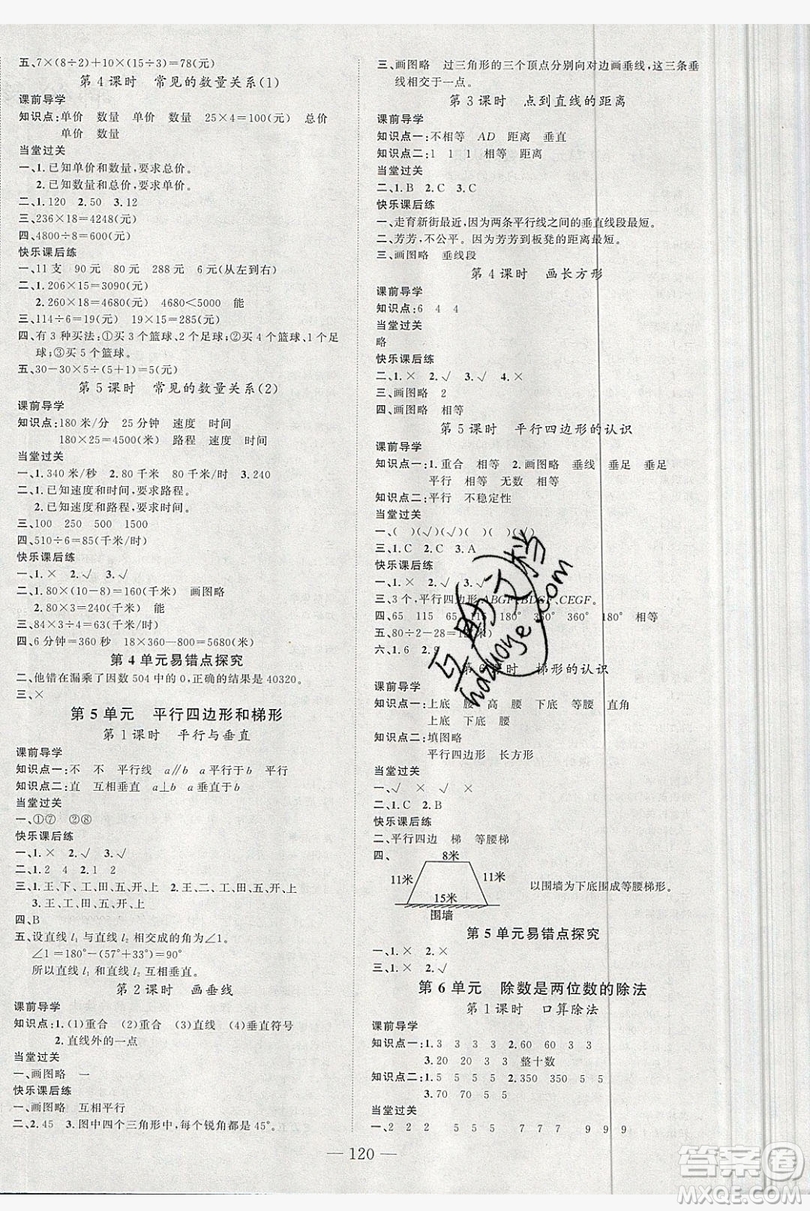 五、7×(8÷2)+10×(15÷3)=78(元)
第4课时 常见的数量关系(1)
课前导学
知识点:单价 数量 单价 数量 25×4=100(元) 总价
单价 数量
当堂过关
一、1.已知单价和数量,要求总价。
2.已知总价和数量,要求单价。
二、1.120 2.50 3.12
三、236×18=4248(元)
四、4800÷8=600(元)
快乐课后练
一、11支 90元 80元 288元 6元(从左到右)
二、1.206×15=3090(元)
2.360×10=4680(元) 4680<5000 能
三、114÷6=19(元) 19×15=285(元)
四、有3种买法:①买3个篮球、2个足球;②买4个篮球、1个足
球;③买5个篮球。
五、30-30×5÷(5+1)=5(元)
第5课时 常见的数量关系(2)
课前导学
知识点:180米/分 25分钟 速度 时间
180×25=4500(米) 路程 速度 时间
当堂过关
一、1.340米/秒 2.80千米/时 3.240
二、1.已知速度和时间,要求路程。
2.已知路程和时间,要求速度。
三、100 250 500
四、510÷6=85(千米/时)
快乐课后练
一、1.√ 2.× 3.×
二、1.80×2=160(千米) 画图略
2.90÷3=30(千米/时) 画图略
三、80×8÷10=64(千米/时)
四、6分钟=360秒 18×360=6480(千米)
第4单元易错点探究
二、他错在漏乘了因数504中的0,正确的结果是40320。
三、×
第5单元 平行四边形和梯形
第1课时 平行与垂直
课前导学
知识点一:不 不 平行线 a∥b 互相平行
知识点二:直 互相垂直 a⊥b 垂线 垂足
当堂过关
一、①⑦ ②⑧
快乐课后练
一、1.× 2.√ 3.√
二、1.2 4 2.1 2
三、1.王、下、工、田、五、干、正
2.王、下、工、田、五、干、正
四、B
五、设直线l₁与直线l₂相交成的角为∠1。
∠1=180°-(57°+33°)=90°
所以直线l₁与直线l₂互相垂直。
第2课时 画垂线
课前导学
知识点:1.(1)重合 (2)重合 (3)直线 (4)垂直符号
2.直线外的一点
当堂过关
一、画图略 一
快乐课后练
一、画图略 互相平行
二、2.45 3.图中四个三角形中,每个锐角都是45°。
三、画图略 过三角形的三个顶点分别向对边画垂线,这三条垂
线相交于一点。
第3课时 点到直线的距离
课前导学
知识点一:不相等 AD 距离 垂直
知识点二:1 1 1 相等
当堂过关
二、1.B 2.C 3.B
快乐课后练
一、走育新街最近,因为两条平行线之间的垂直线段最短。
二、芳芳,不公平。因为芳芳到板凳的距离最短。
三、画图略 垂线段
第4课时 画长方形
课前导学
知识点:6 4 4
当堂过关
略
快乐课后练
一、1.× 2.√ 3.√ 4.×
三、画图略 2
四、画图略 相等
第5课时 平行四边形的认识
课前导学
知识点一:1.重合 相等 2.画图略 垂线 垂足 垂足
平行 相等
知识点二:平行 不稳定性
当堂过关
一、( )(√)(√)( )(√)( )
二、1.C 2.C 3.A
快乐课后练
一、1.√ 2.× 3.√
三、3,平行四边形ABGF、BDGF、CEGF。
四、65 115 65 115 360° 180° 360°
五、80÷2-28=12(厘米)
六、1.6 2.9
第6课时 梯形的认识
课前导学
知识点一:上底 腰 高 腰 下底 等腰 直角
上底 下底 腰 等腰
知识点二:填图略
平行四边形 长方形
当堂过关
一、√ × × ×
二、1.C 2.B
快乐课后练
二、平行四边 梯 等腰梯
四、 8米
11米 11米
15米
围墙
以围墙为下底围成等腰梯形。
第5单元易错点探究
一、1.× 2.×
三、1.√ 2.×
第6单元 除数是两位数的除法
第1课时 口算除法
课前导学
知识点一:1.3 3 3 2.60 60 3 3
3.20 20 3 3 整十数
知识点二:1.6 6 2.20 20 6 6
3.120 20 6 6
当堂过关
一、2 2 2 5 5 5 7 7 7 9 9 9
— 120 —
互助文档
hdzuoye.com
答案圈
MXQE.COM